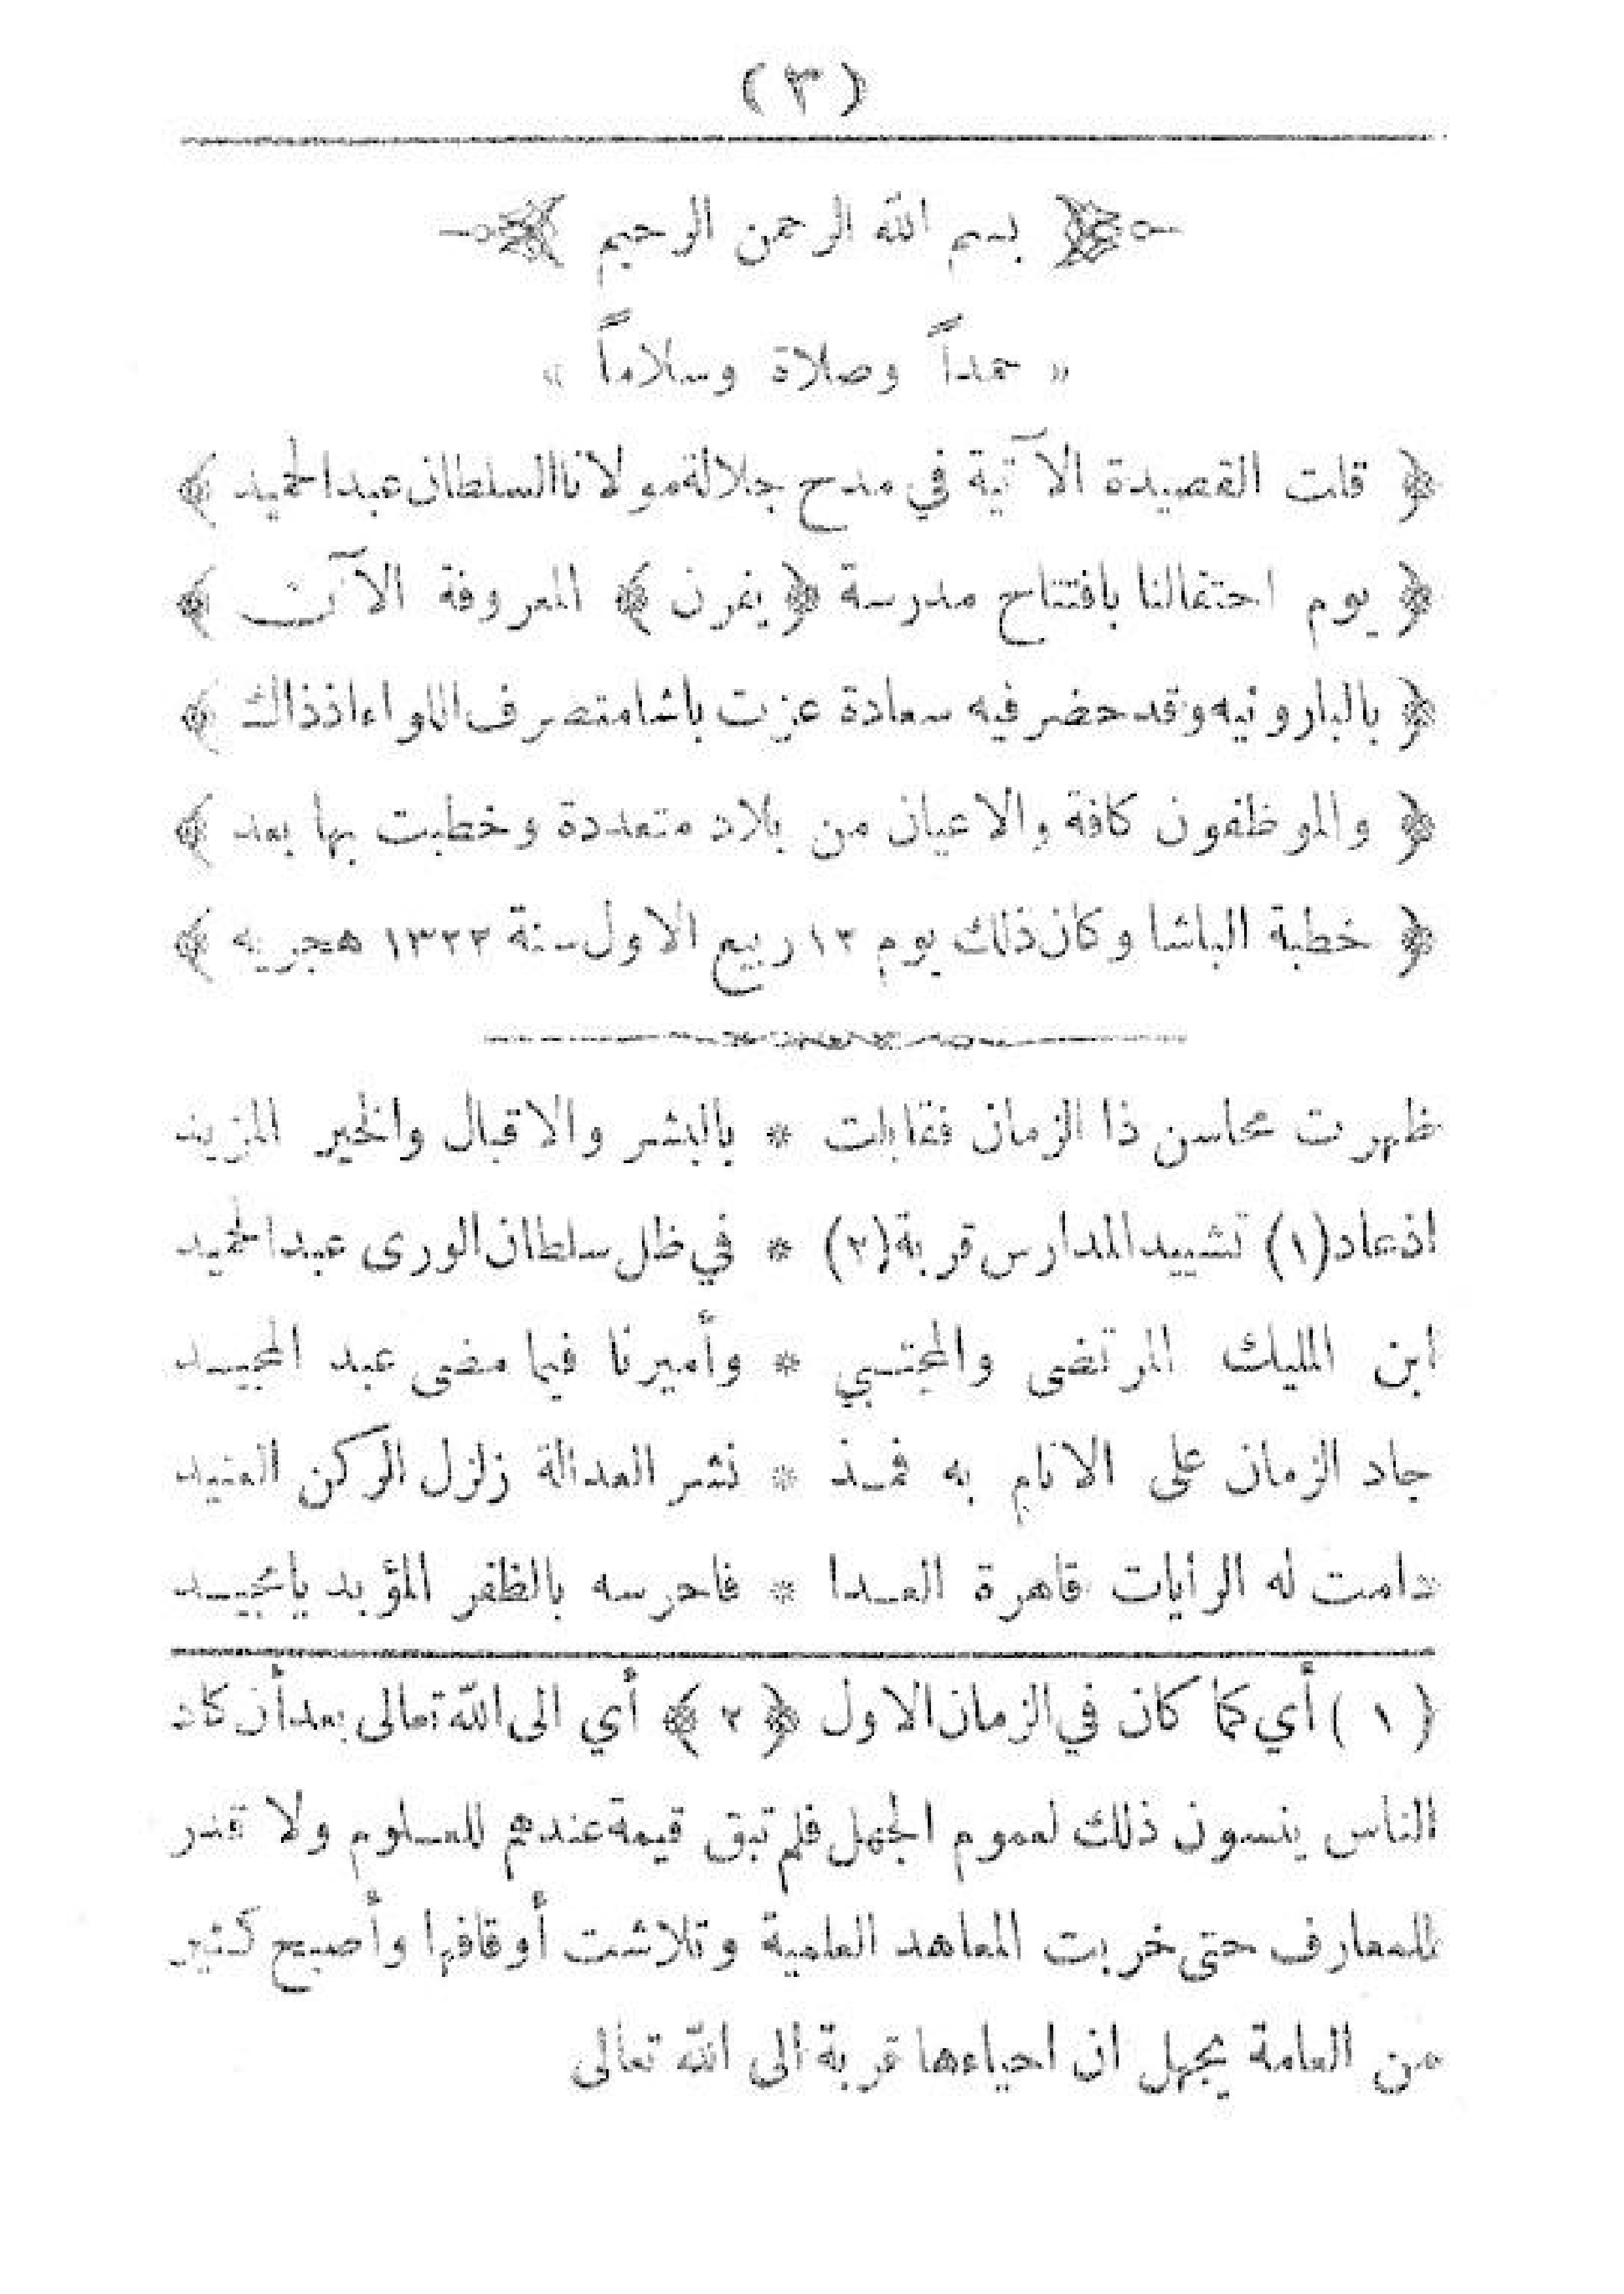 (٣)
﴿ بسم الله الرحمن الرحيم ﴾
« حمداً وصلاة وسلاماً »
﴿ قلت القصيدة الآتية في مدح جلالة مولانا السلطان عبدالحميد ﴾
﴿ يوم احتفالنا بافتتاح مدرسة ﴿ يفرن ﴾ المعروفة الآن ﴾
﴿ بالبارونيه وقد حضر فيه سعادة عزت باشا متصرف اللواء اذ ذاك ﴾
﴿ والموظفون كافة والاعيان من بلاد متعددة وخطبت بها بعد ﴾
﴿ خطبة الباشا وكان ذلك يوم ١٣ ربيع الاول سنة ١٣٢٢ هجريه ﴾
ظهرت محاسن ذا الزمان فقابلت * بالبشر والاقبال والخير المزيد
اذ عاد (١) تشييد المدارس قربة (٢) * في ظل سلطان الورى عبدالحميد
ابن المليك المرتضى والمجتبي * وأميرنا فيما مضى عبد المجيد
جاد الزمان على الانام به فمذ * نشر العدالة زلزل الركن العنيد
دامت له الرايات قاهرة العدا * فاحرسه بالظفر المؤبد يامجيد
( ١ ) أي كما كان في الزمان الاول ﴿ ٢ ﴾ أي الى الله تعالى بعد أن كان
الناس ينسون ذلك لعموم الجهل فلم تبق قيمة عندهم للعلوم ولا قدر
للمعارف حتى خربت المعاهد العلمية وتلاشت أوقافها وأصبح كثير
من العامة يجهل ان احياءها قربة الى الله تعالى